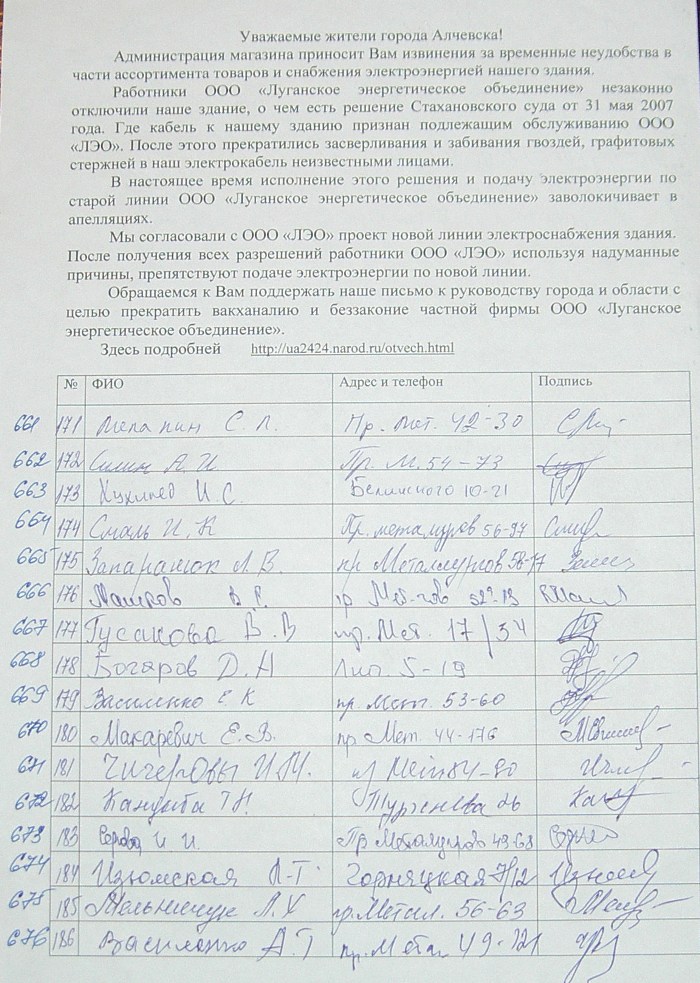 Уважаемые жители города Алчевска!
Администрация магазина приносит Вам извинения за временные неудобства в
части ассортимента товаров и снабжения электроэнергией нашего здания.
Работники ООО «Луганское энергетическое объединение» незаконно
отключили наше здание, о чем есть решение Стахановского суда от 31 мая 2007
года. Где кабель к нашему зданию признан подлежащим обслуживанию ООО
«ЛЭО». После этого прекратились засверливания и забивания гвоздей, графитовых
стержней в наш электрокабель неизвестными лицами.
В настоящее время исполнение этого решения и подачу электроэнергии по
старой линии ООО «Луганское энергетическое объединение» заволокичивает в
апелляциях.
Мы согласовали с ООО «ЛЭО» проект новой линии электроснабжения здания.
После получения всех разрешений работники ООО «ЛЭО» используя надуманные
причины, препятствуют подаче электроэнергии по новой линии.
Обращаемся к Вам поддержать наше письмо к руководству города и области с
целью прекратить вакханалию и беззаконие частной фирмы ООО «Луганское
энергетическое объединение».
Здесь подробней http://ua2424.narod.ru/otvech.html
№ ФИО Адрес и телефон Подпись
661 171 С. Л. Пр. Мет. 42-30
662 172 А. И Пр. М. 54-73
663 173 И. С. Белинского 10-21
664 174 Смаль И. К Пр. металургов 56-97
665 175 Запаранюк Л. В. пр Металлургов 56-77
666 176 Машков пр
667 177 Гусакова В. В пр. Мет. 17/34
668 178 Богаров Д. Н 5-19
669 179 Василенко Е К пр. Мет. 53-60
670 180 Макаревич Е. В. пр Мет. 44-176
671 181 И. М.
672 182 Кандиба Т Н. Тургенева 26
673 183 Серова И И. Пр Металургов 49-68
674 184 Изюмская Л-Т Горняцкая
675 185 Мельничук Л. Х пр. Метал. 56-63
676 186 Василенко А. Т пр. Метал 49-